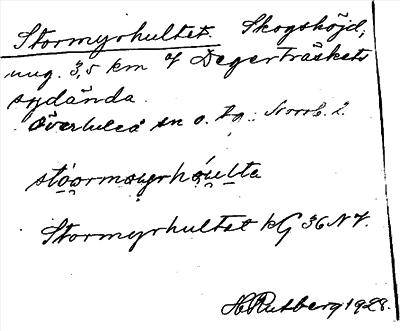 Stormyrhultet. Skogshöjd,
ung. 3,5 km V Degerträskets
sydända.
Överluleå sn o. tg. Norrb. l.
Stormyrhultet kG 36 NV.
H Rutberg 1928.